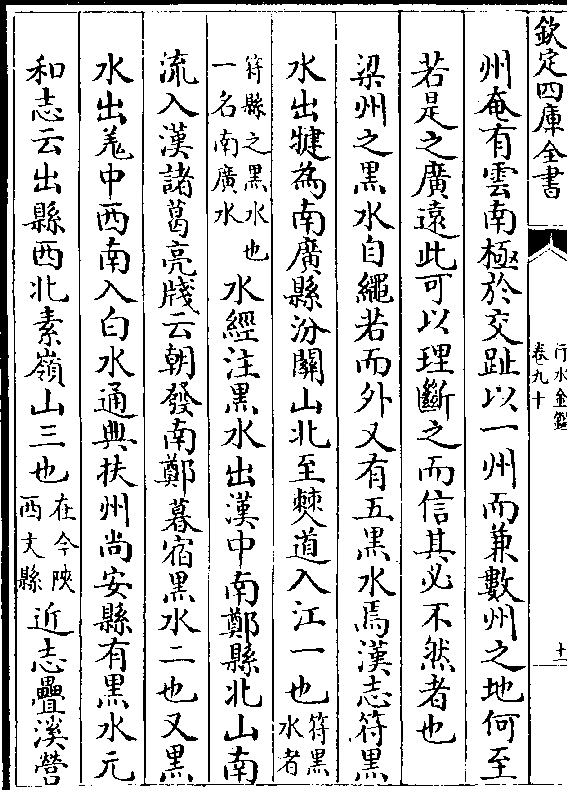 欽定四庫全書
行水金鑑
卷九十
十一
州奄有雲南極於交趾以一州而兼數州之地何至
若是之廣遠此可以理斷之而信其必不然者也
梁州之黑水自繩若而外又有五黑水焉漢志符黑
水出犍為南廣縣汾關山北至僰道入江一也符黑水者
符縣之黑水也一名南廣水水經注黑水出漢中南鄭縣北山南
流入漢諸葛亮牋云朝發南鄭暮宿黑水二也又黑
水出羌中西南入白水通典扶州尚安縣有黑水元
和志云出縣西北素嶺山三也在今陝西文縣近志疊溪營